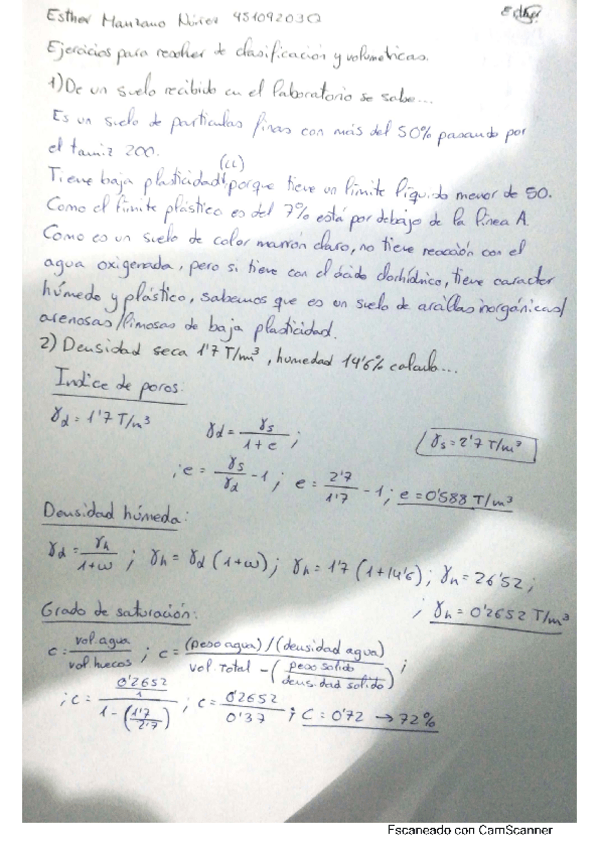 Esther Manzano Núñez 45109203Q
Esther
Ejercicios para resolver de clasificación y volumétricas.
1) De un suelo recibido en el laboratorio se sabe...
Es un suelo de partículas finas con más del 50% pasando por
el tamiz 200.
(CL)
Tiene baja plasticidad porque tiene un límite líquido menor de 50.
Como el límite plástico es del 7% está por debajo de la línea A.
Como es un suelo de color marrón claro, no tiene reacción con el
agua oxigenada, pero si tiene con el ácido clorhídrico, tiene caracter
húmedo y plástico, sabemos que es un suelo de arcillas inorgánicas/
arenosas/limosas de baja plasticidad.
2) Densidad seca 1'7 T/m³, humedad 14'6% calculo...
Indice de poros:
γd = 1'7 T/m³
γd = γs / (1 + e) ;
γs = 2'7 T/m³
; e = γs/γd - 1 ; e = 2'7/1'7 - 1 ; e = 0'588 T/m³
Densidad húmeda:
γd = γh / (1+ω) ; γh = γd (1+ω) ; γh = 1'7 (1+14'6) ; γh = 26'52 ;
; γh = 0'2652 T/m³
Grado de saturación:
c = vol. agua / vol huecos ; c = (peso agua) / (densidad agua) / vol. Total - (peso solido / densidad solido) ;
; c = (0'2652 / 1) / (1 - (1'7 / 2'7)) ; c = 0'2652 / 0'37 ; C = 0'72 → 72%
Escaneado con CamScanner